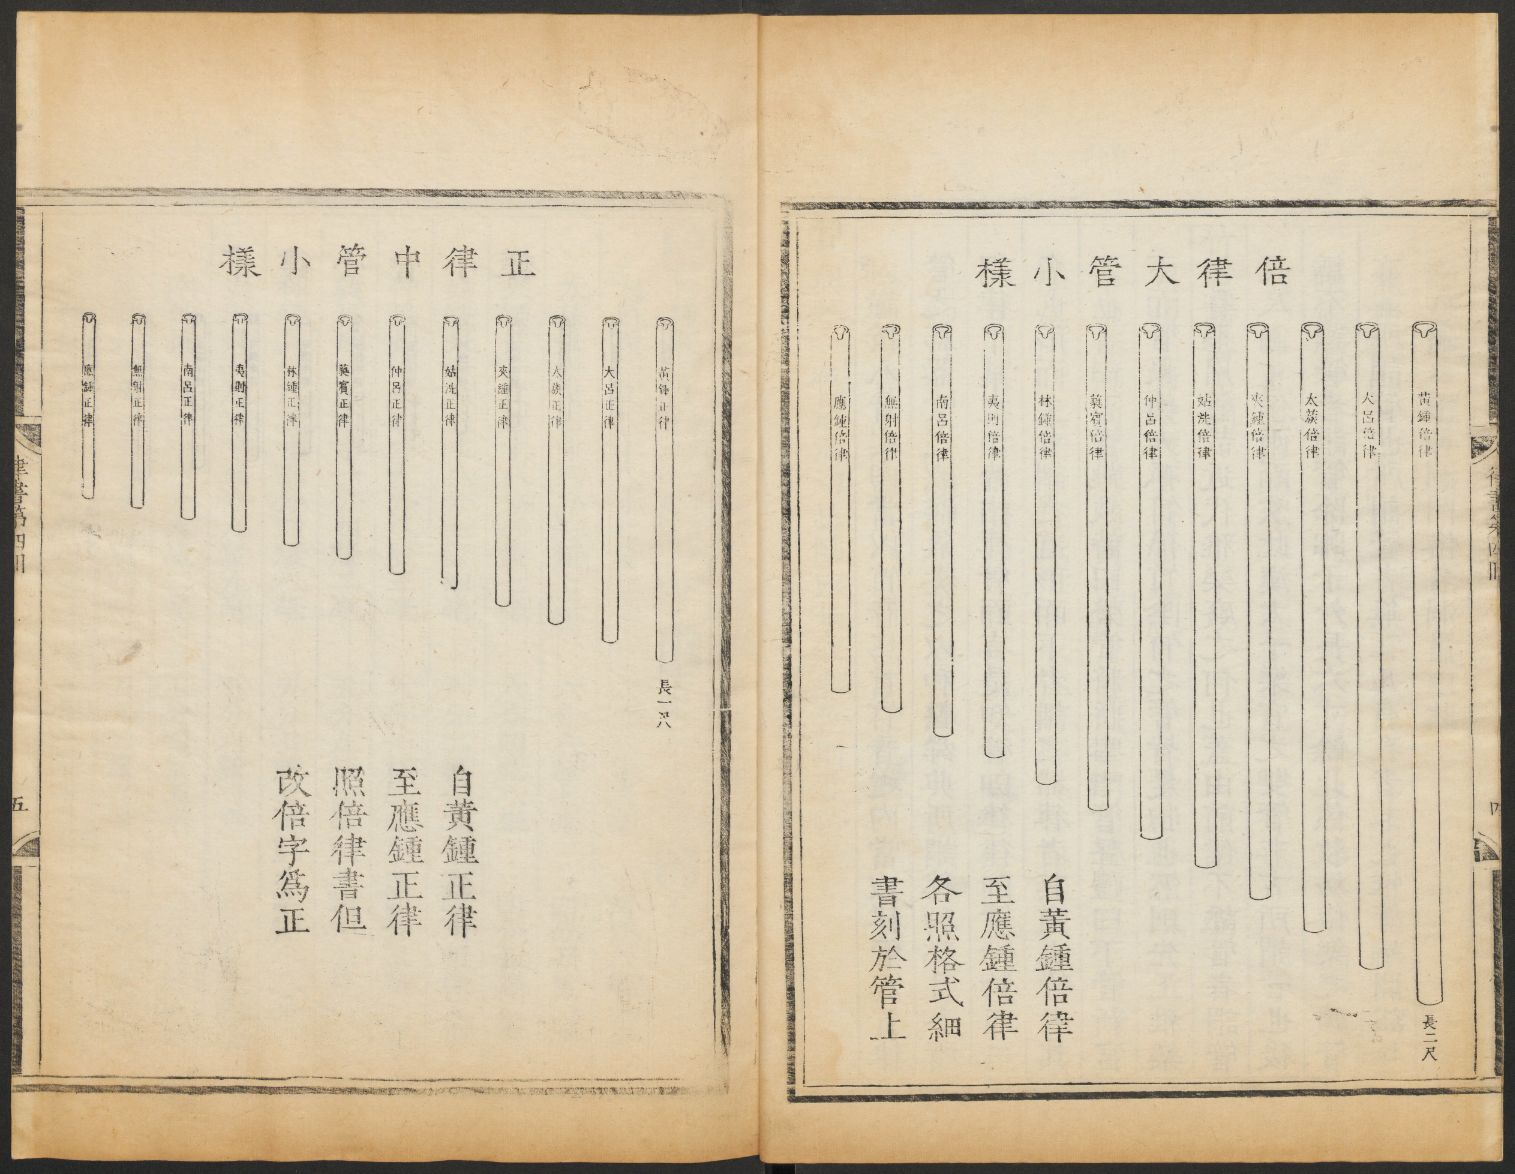 倍律大管小樣
黃鍾倍律
大呂倍律
太蔟倍律
夾鍾倍律
姑洗倍律
仲呂倍律
蕤賓倍律
林鍾倍律
夷則倍律
南呂倍律
無射倍律
應鍾倍律
長二尺
自黃鍾倍律
至應鍾倍律
各照格式細
書刻於管上
正律中管小樣
黃鍾正律
大呂正律
太蔟正律
夾鍾正律
姑洗正律
仲呂正律
蕤賓正律
林鍾正律
夷則正律
南呂正律
無射正律
應鍾正律
長一尺
自黃鍾正律
至應鍾正律
照倍律書但
改倍字爲正
五